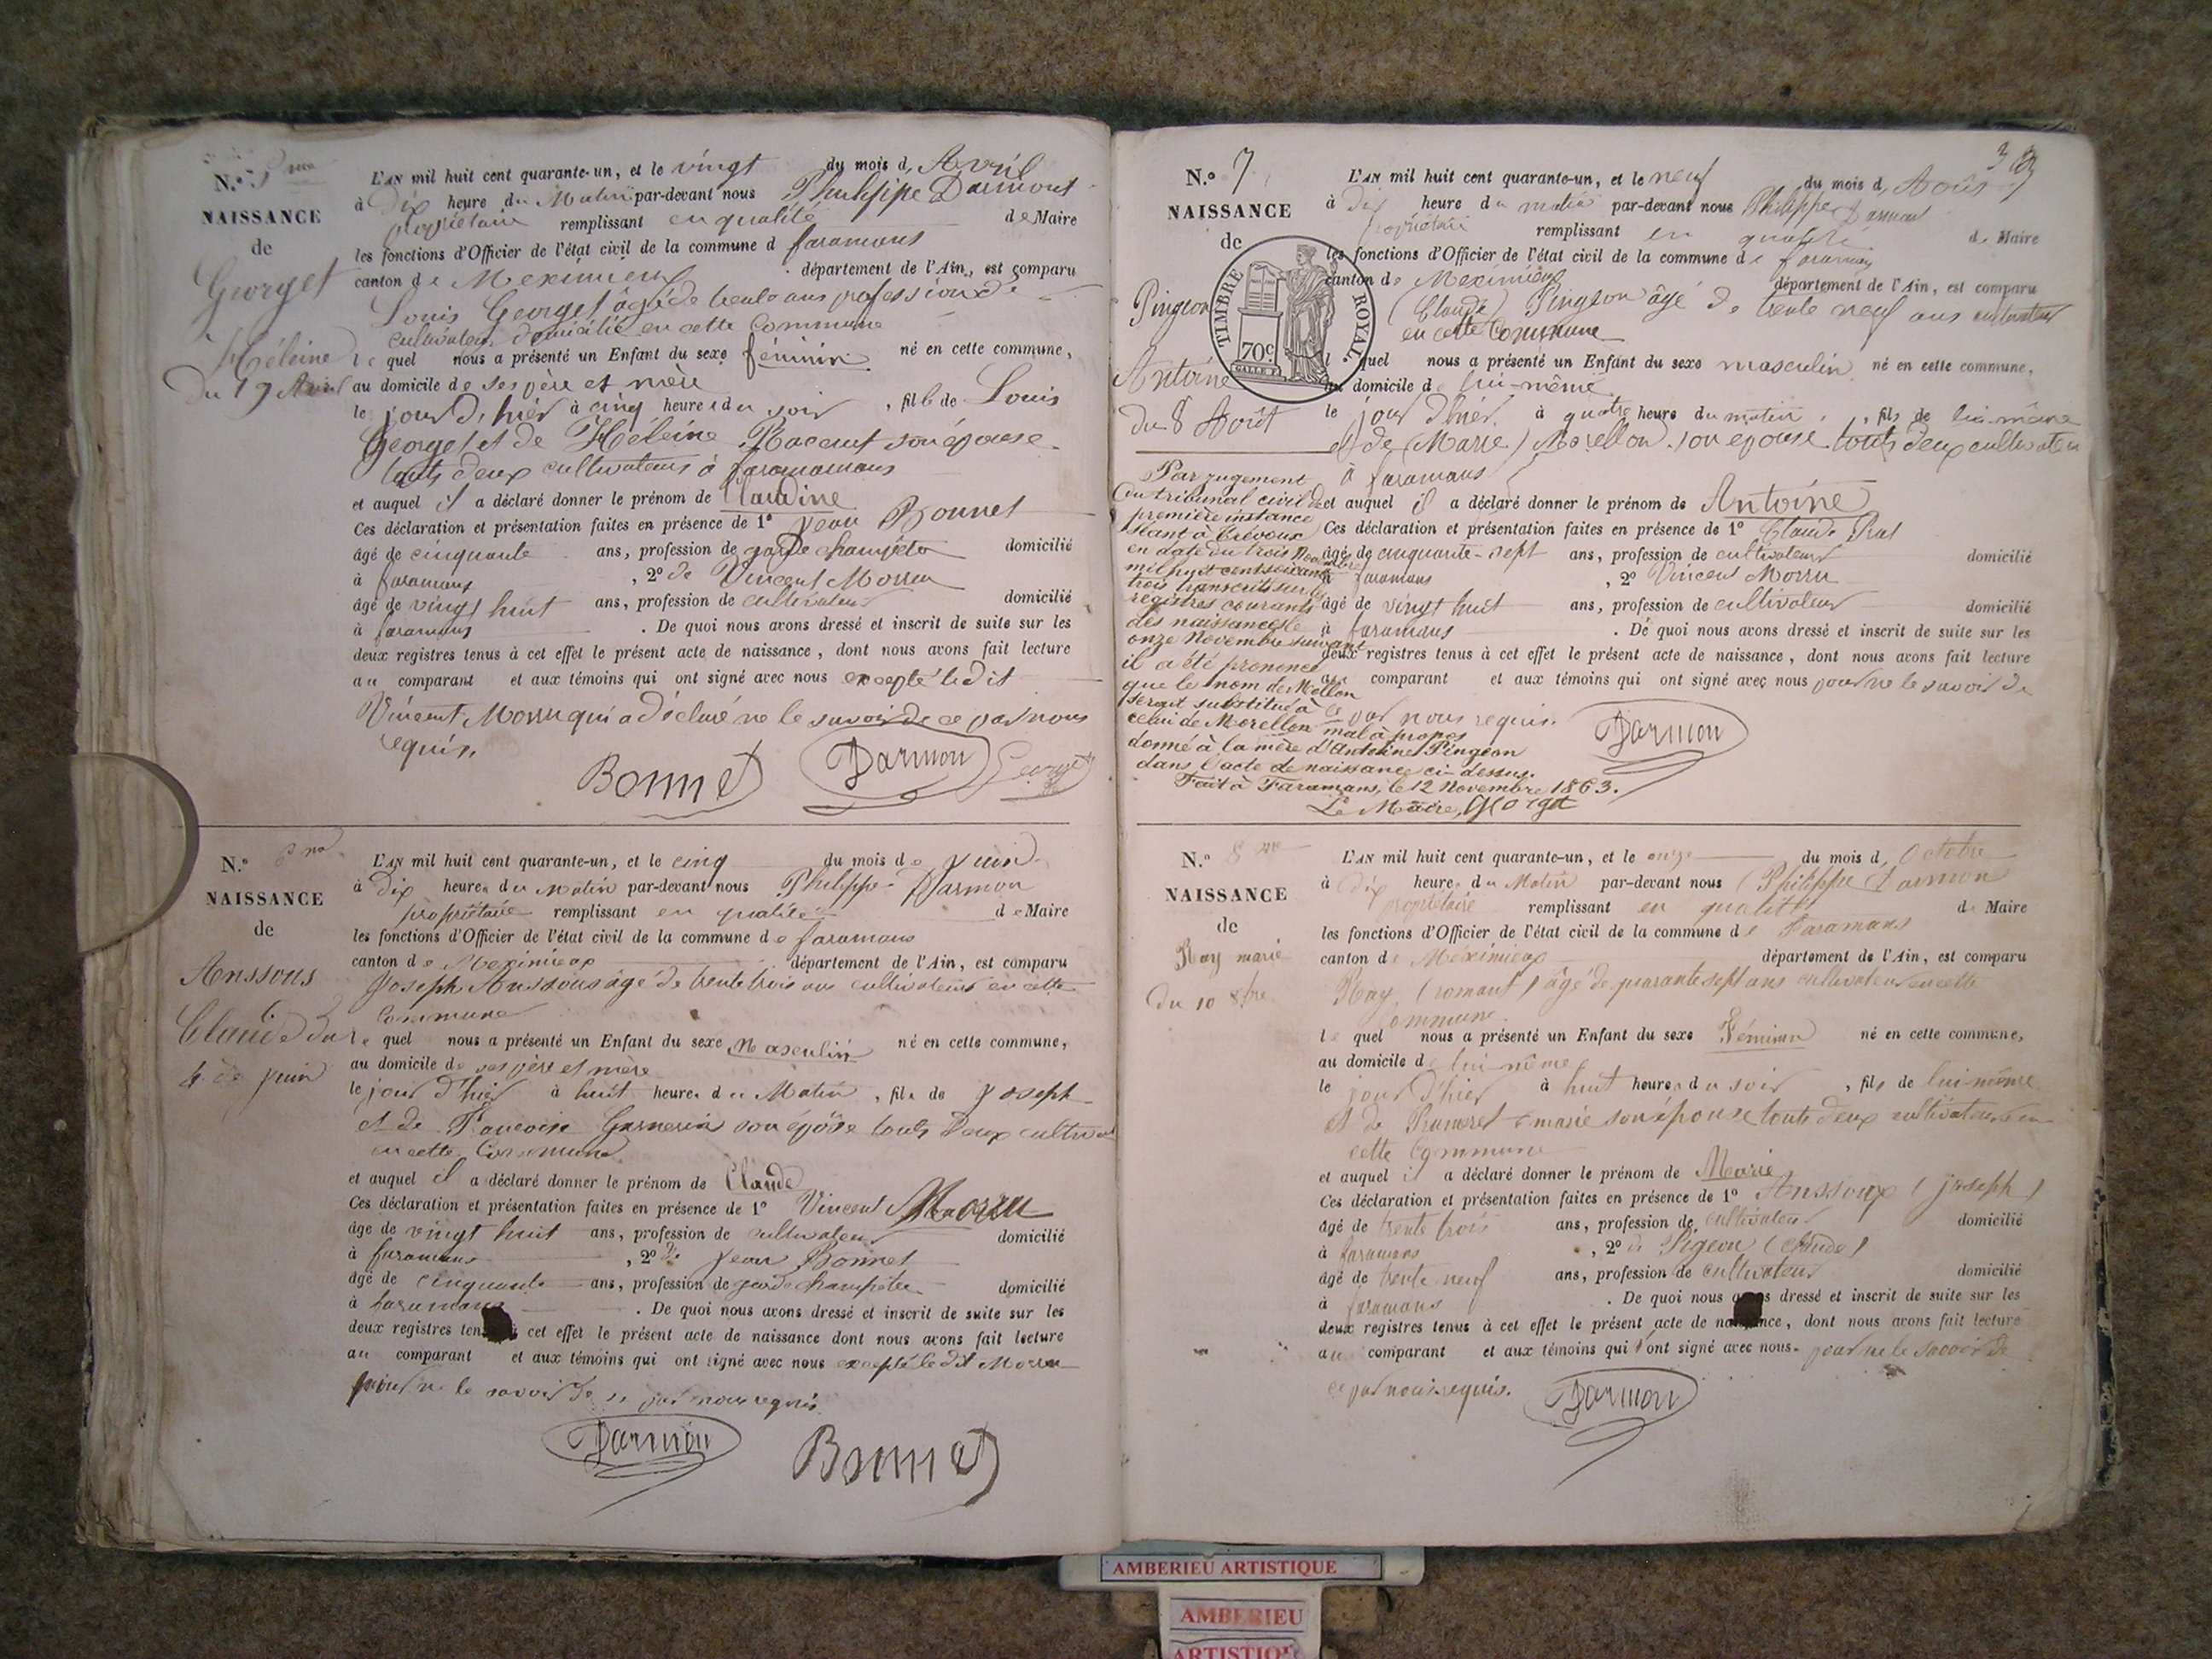 N.º 5me
NAISSANCE
de
Georget
Héleine
Du 19 Avril
L'AN mil huit cent quarante-un, et le vingt du mois d'Avril
à Dix heure du Matin par-devant nous Philippe Darmont
propriétaire remplissant en qualité de Maire
les fonctions d'Officier de l'état civil de la commune d faramans
canton de Meximieux département de l'Ain, est comparu
Louis Georget âgé de trente ans profession de
cultivateur domicilié en cette Commune
le quel nous a présenté un Enfant du sexe féminin né en cette commune,
au domicile de ses père et mère
le jour d'hier à cinq heure du soir, fille de Louis
Georget et de Héleine son épouse
touts deux cultivateurs à faramans
et auquel il a déclaré donner le prénom de Claudine
Ces déclaration et présentation faites en présence de 1º Jean Bonnet
âgé de cinquante ans, profession de garde champêtre domicilié
à faramans, 2º de Vincent Morru
âgé de vingt huit ans, profession de cultivateur domicilié
à faramans. De quoi nous avons dressé et inscrit de suite sur les
deux registres tenus à cet effet le présent acte de naissance, dont nous avons fait lecture
au comparant et aux témoins qui ont signé avec nous excepté ledit
Vincent Morru qui a déclaré ne le savoir de ce par nous
requis.
Bonnet Darmon Georget
N.º 6me
NAISSANCE
de
Anssous
Claude du
4 de juin
L'AN mil huit cent quarante-un, et le cinq du mois de Juin
à dix heures du Matin par-devant nous Philippe Darmon
propriétaire remplissant en qualité de Maire
les fonctions d'Officier de l'état civil de la commune de faramans
canton de Meximieux département de l'Ain, est comparu
Joseph Anssous âgé de trente trois ans cultivateur en cette
Commune
le quel nous a présenté un Enfant du sexe Masculin né en cette commune,
au domicile de ses père et mère
le jour d'hier à huit heures du Matin, fils de Joseph
et de Françoise Garnerin son épose touts deux
en cette Commune
et auquel il a déclaré donner le prénom de Claude
Ces déclaration et présentation faites en présence de 1º Vincent Morru
âgé de vingt huit ans, profession de cultivateur domicilié
à faramans, 2º de Jean Bonnet
âgé de cinquante ans, profession de garde champêtre domicilié
à faramans. De quoi nous avons dressé et inscrit de suite sur les
deux registres à cet effet le présent acte de naissance dont nous avons fait lecture
au comparant et aux témoins qui ont signé avec nous excepté le dit Morru
pour ne le savoir de ce par nous requis.
Darmon Bonnet
N.º 7
NAISSANCE
de
TIMBRE ROYAL.
70c.
Pingeon
Antoine
du 8 Août
L'AN mil huit cent quarante-un, et le neuf du mois d'Août
à dix heure du matin par-devant nous Philippe Darmont
propriétaire remplissant en qualité de Maire
les fonctions d'Officier de l'état civil de la commune de faramans
canton de Meximieux département de l'Ain, est comparu
(Claude) Pingeon âgé de trente neuf ans cultivateur
en cette Commune
l quel nous a présenté un Enfant du sexe masculin né en cette commune,
au domicile de lui-même
le jour d'hier à quatre heure du matin, fils de lui-même
et de (Marie) Morellon son epouse touts deux cultivateurs
à faramans
et auquel il a déclaré donner le prénom de Antoine
Ces déclaration et présentation faites en présence de 1º Claude
âgé de cinquante-sept ans, profession de cultivateur domicilié
à faramans, 2º Vincent Morru
âgé de vingt huit ans, profession de cultivateur domicilié
à faramans. De quoi nous avons dressé et inscrit de suite sur les
deux registres tenus à cet effet le présent acte de naissance, dont nous avons fait lecture
au comparant et aux témoins qui ont signé avec nous pour ne le savoir de
ce par nous requis.
Darmon
Par jugement
du tribunal civil de
première instance
séant à Trévoux
en date du trois Novembre
mil huit cent soixante
trois transcrit sur les
registres courants
des naissances le
onze Novembre suivant
il a été prononcé
que le nom de Mollon
serait substitué à
celui de Morellon mal à propos
donné à la mère d'Antoine Pingeon
dans l'acte de naissance ci-dessus.
Fait à Faramans, le 12 Novembre 1863.
Le Maire, Georget
N.º 8me
NAISSANCE
de
Ray marie
du 10 8bre
L'AN mil huit cent quarante-un, et le onze du mois d'Octobre
à dix heures du Matin par-devant nous Philippe Darmon
propriétaire remplissant en qualité de Maire
les fonctions d'Officier de l'état civil de la commune de Faramans
canton de Meximieux département de l'Ain, est comparu
Ray (romant) âgé de quarante sept ans cultivateur en cette
ommune
le quel nous a présenté un Enfant du sexe Féminin né en cette commune,
au domicile de lui même
le jour d'hier à huit heures du soir, fille de lui même
et de marie son épouse touts deux cultivateurs en
cette Commune
et auquel il a déclaré donner le prénom de Marie
Ces déclaration et présentation faites en présence de 1º Anssoux (joseph)
âgé de trente trois ans, profession de cultivateur domicilié
à faramans, 2º de Pigeon (Claude)
âgé de trente neuf ans, profession de cultivateur domicilié
à faramans. De quoi nous dressé et inscrit de suite sur les
deux registres tenus à cet effet le présent acte de naissance, dont nous avons fait lecture
au comparant et aux témoins qui ont signé avec nous pour ne le savoir de
ce par nous requis.
Darmon
AMBERIEU ARTISTIQUE
AMBERIEU
ARTISTIQUE